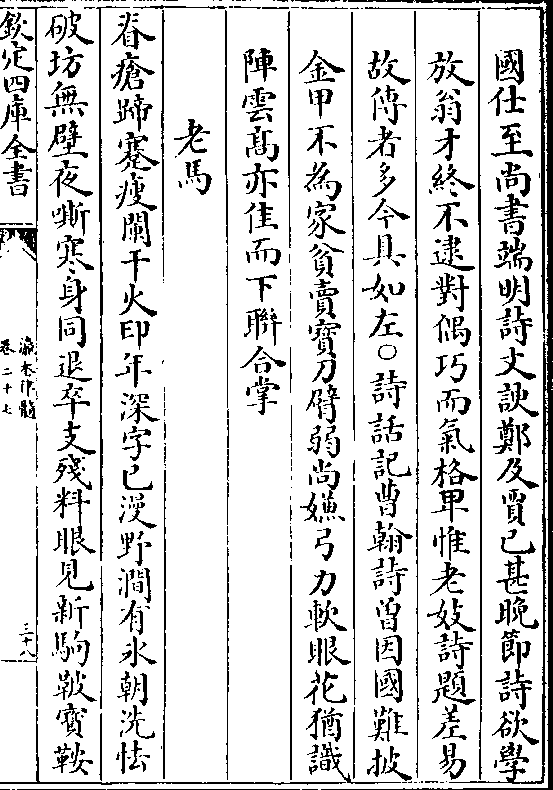 國仕至尚書端明詩文諛鄭及賈已甚晚節詩欲學
放翁才終不逮對偶巧而氣格卑惟老妓詩題差易
故傳者多今具如左○詩話記曹翰詩曽因國難披
金甲不為家貧賣寳刀臂弱尚嫌弓力軟眼花猶識
陣雲髙亦佳而下聯合掌
老馬
脊瘡蹄蹇瘦闌干火印年深字已漫野澗有氷朝洗怯
破坊無壁夜嘶寒身同退卒支殘料眼見新駒鞁寳鞍
欽定四庫全書
瀛奎律髓
卷二十七
三十八